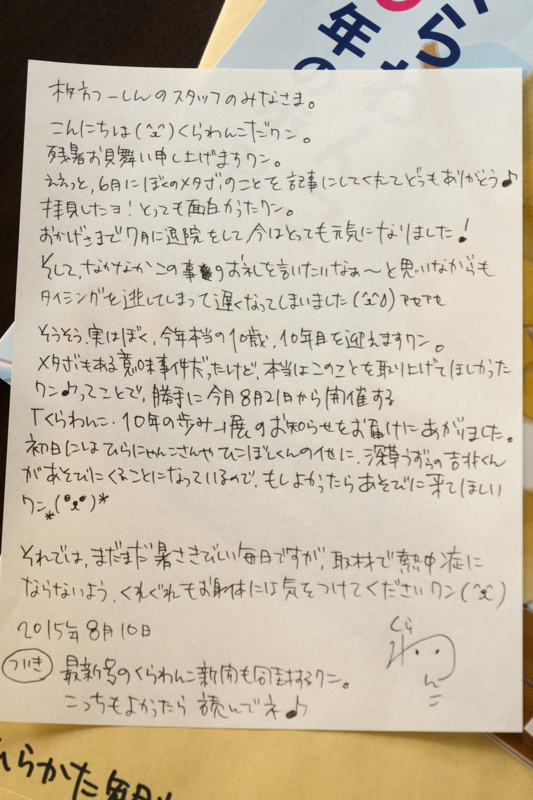 年
枚方つーしんのスタッフのみなさま。
こんにちは(^ᴥ^)くらわんこだワン。
残暑お見舞い申し上げますワン。
ええっと、6月にぼくのメタボのことを記事にしてくれてどうもありがとう♪
拝見したヨ!とっても面白かったワン。
おかげさまで7月に退院をして今はとっても元気になりました!
そして、なかなかこの事のお礼を言いたいなぁ〜と思いながらも
タイミングを逃してしまって遅くなってしまいました(^ᴥ^;)アセアセ
そうそう、実はぼく、今年本当の10歳、10年目を迎えますワン。
メタボもある意味事件だったけど、本当はこのことを取り上げてほしかった
ワン♪ってことで、勝手に今月8月21日から開催する
「くらわんこ・10年の歩み」展のお知らせをお届けにあがりました。
初日にはひらにゃんこさんやひこぼしくんの他に、深草うずらの吉兆くん
があそびにくることになっているので、もしよかったらあそびに来てほしい
ワン*(•ᴥ•)*
それでは、まだまだ暑さきびしい毎日ですが、取材で熱中症に
ならないよう、くれぐれもお身体には気をつけてくださいワン(^ᴥ^)
2015年8月10日
くら
わ
んこ
ついき 最新号のくらわんこ新聞も同封するワン。
こっちもよかったら読んでネ♪
ひらかた観